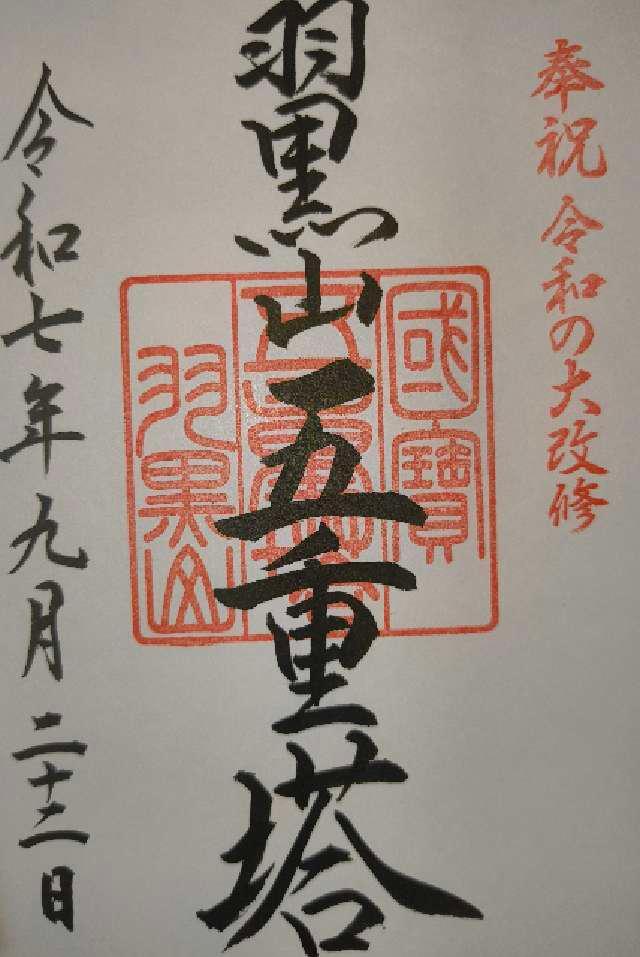 奉祝 令和の大改修
羽黒山五重塔
國寶
五重塔
羽黒山
令和七年九月二十二日